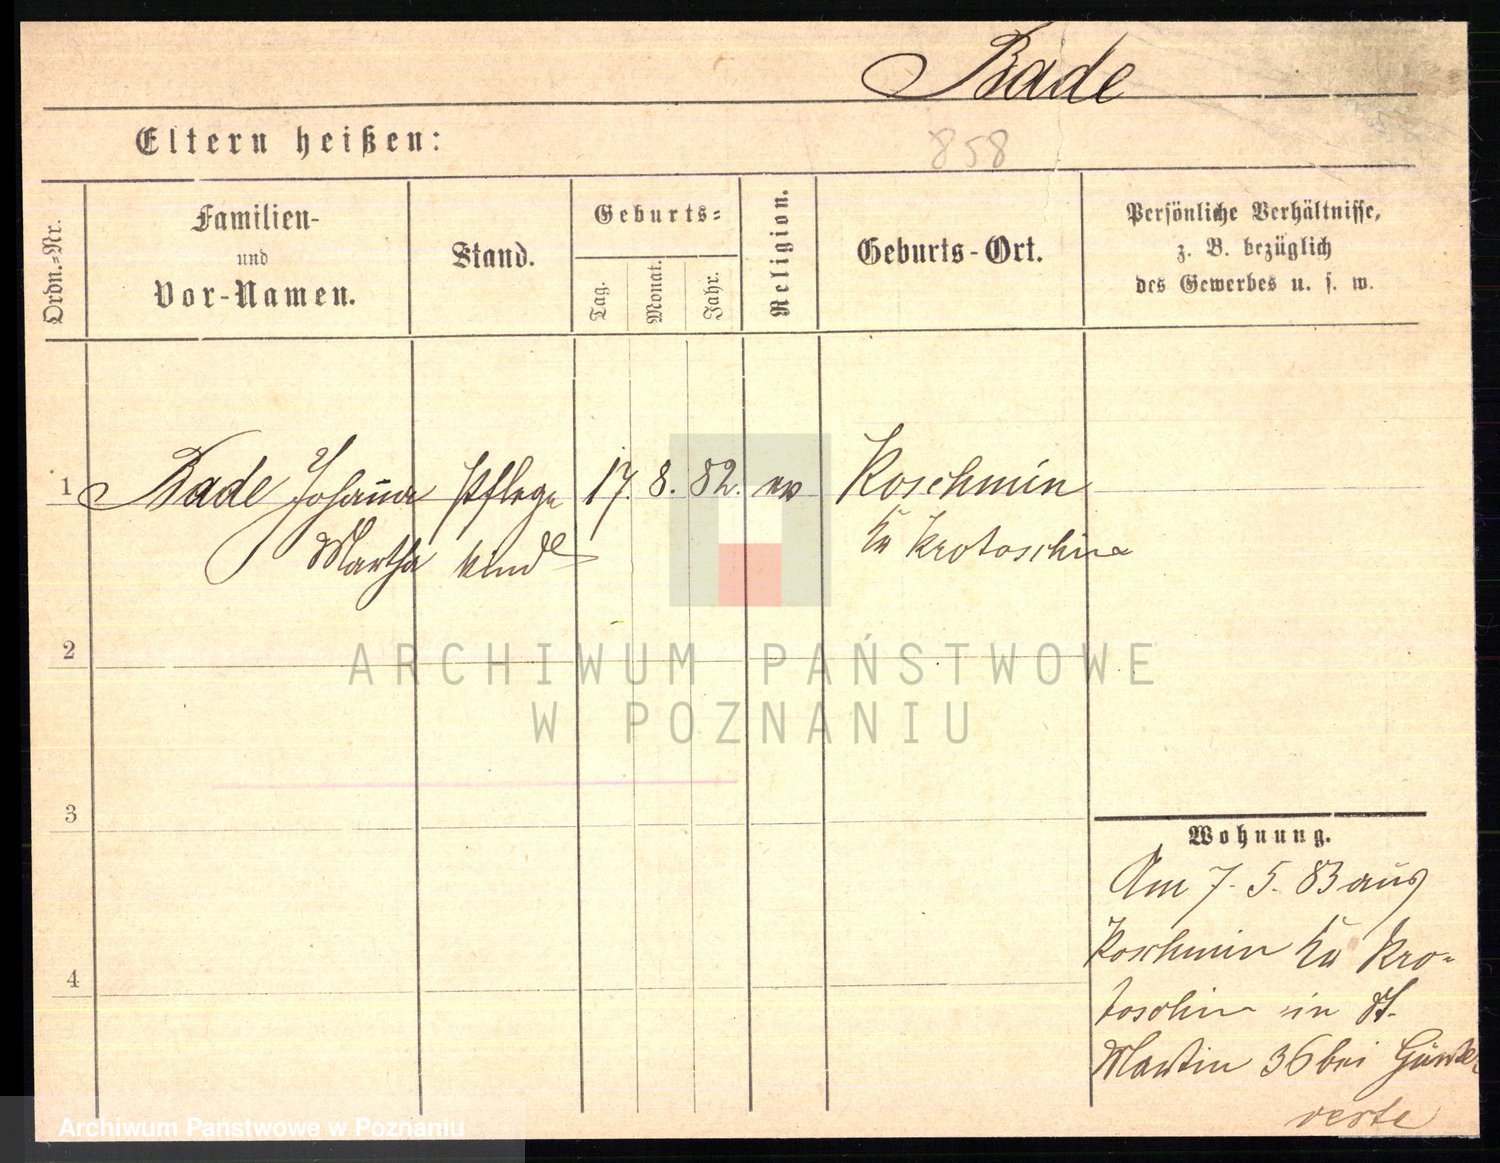 Bade
Eltern heißen:
858
Ordn.=Nr.
Familien-
und
Vor-Namen.
Stand.
Geburts=
Tag.
Monat.
Jahr.
Religion.
Geburts-Ort.
Persönliche Verhältnisse,
z. B. bezüglich
des Gewerbes u. s. w.
1 Bade Johanna Pflege 17. 8. 82. ev Koschmin
Martha kind Kr Krotoschin
2
ARCHIWUM PAŃSTWOWE
W POZNANIU
3
Wohnung.
Am 7. 5. 83 aus
Koschmin Kr Kro-
4
toschin in St.
Martin 36 bei Günter
verte
Archiwum Państwowe w Poznaniu